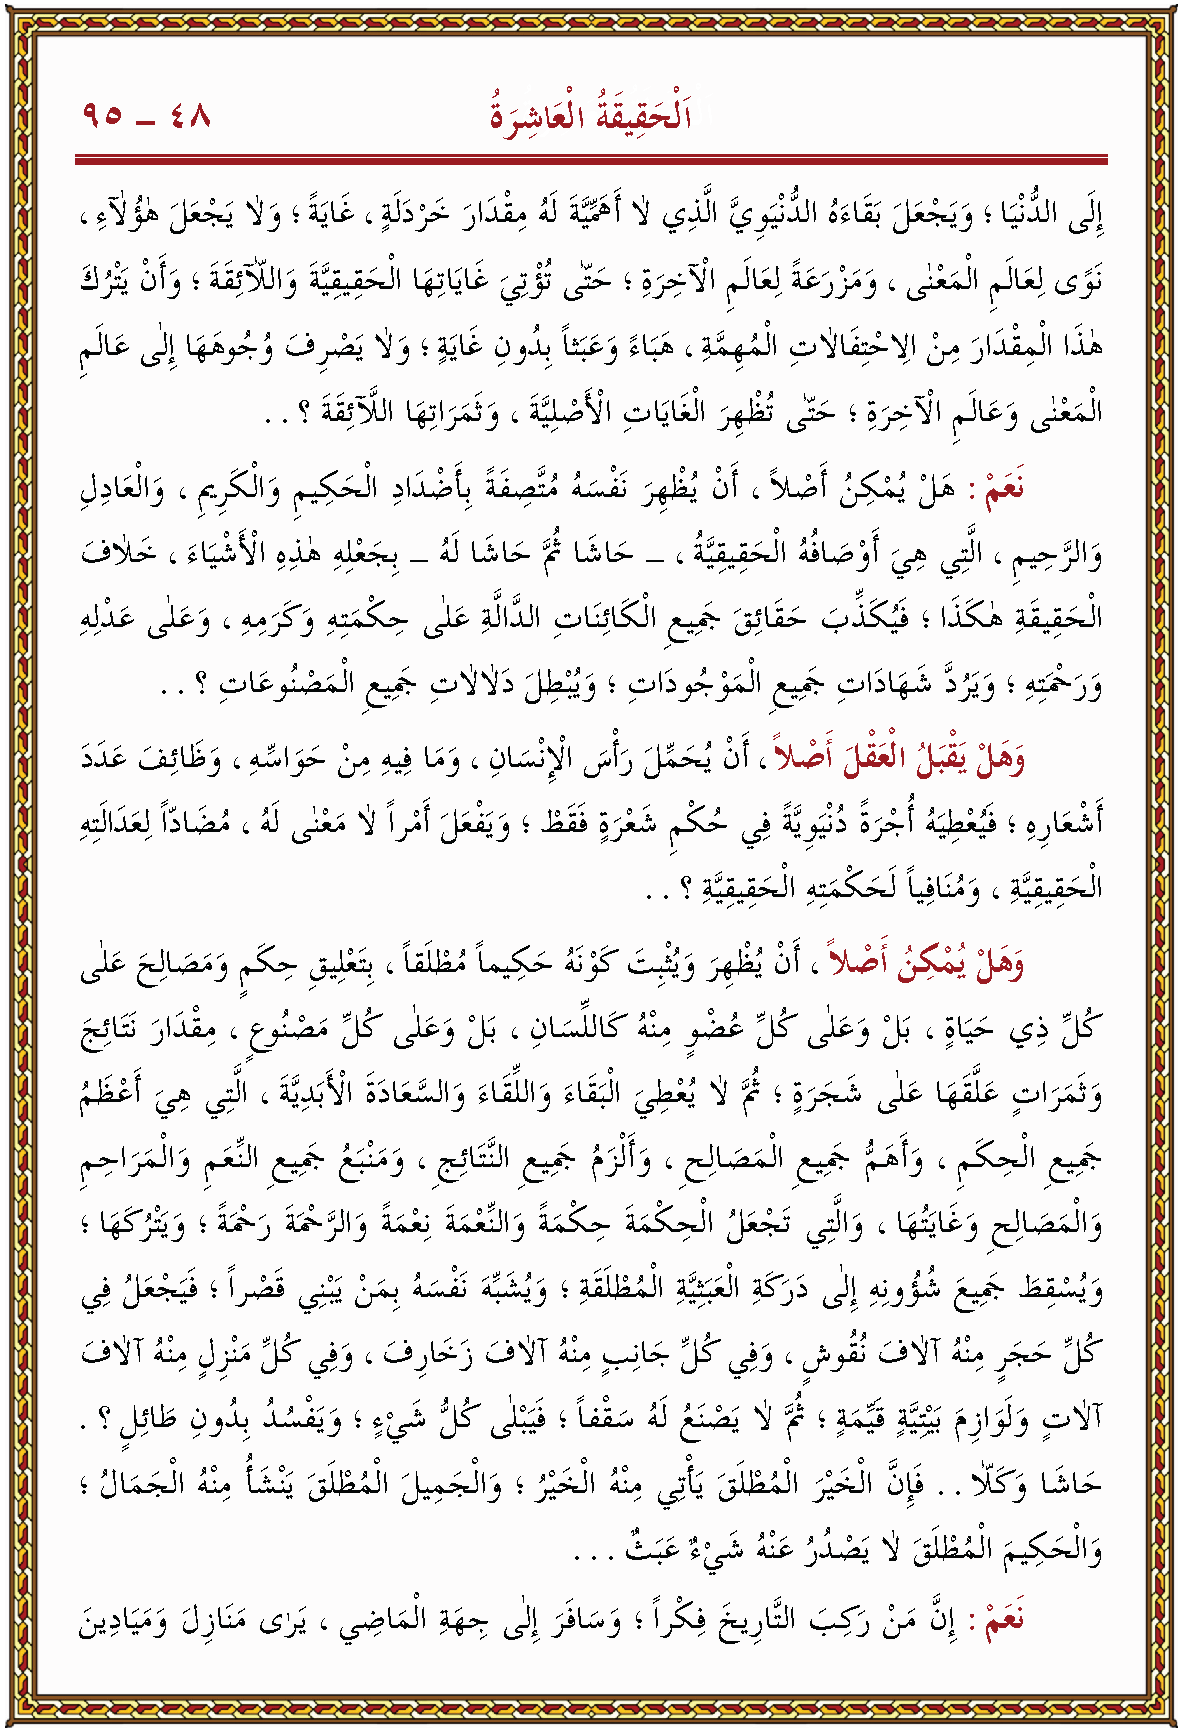 اَلْحَقِيقَةُ الْعَاشِرَةُ ٤٨ – ٩٥
إِلَى الدُّنْيَا ؛ وَيَجْعَلَ بَقَاءَهُ الدُّنْيَوِيَّ الَّذِي لاٰ أَهَمِّيَّةَ لَهُ مِقْدَارَ خَرْدَلَةٍ ، غَايَةً ؛ وَلاٰ يَجْعَلَ هٰؤُلآٰءِ ،
نَوًى لِعَالَمِ الْمَعْنٰى ، وَمَزْرَعَةً لِعَالَمِ الْآخِرَةِ ؛ حَتّٰى تُؤْتِيَ غَايَاتِهَا الْحَقِيقِيَّةَ وَاللآّٰئِقَةَ ؛ وَأَنْ يَتْرُكَ
هٰذَا الْمِقْدَارَ مِنْ الِاحْتِفَالاٰتِ الْمُهِمَّةِ ، هَبَاءً وَعَبَثاً بِدُونِ غَايَةٍ ؛ وَلاٰ يَصْرِفَ وُجُوهَهَا إِلٰى عَالَمِ
الْمَعْنٰى وَعَالَمِ الْآخِرَةِ ؛ حَتّٰى تُظْهِرَ الْغَايَاتِ الْأَصْلِيَّةَ ، وَثَمَرَاتِهَا اللَّآئِقَةَ ؟ . .
نَعَمْ : هَلْ يُمْكِنُ أَصْلاً ، أَنْ يُظْهِرَ نَفْسَهُ مُتَّصِفَةً بِأَضْدَادِ الْحَكِيمِ وَالْكَرِيمِ ، وَالْعَادِلِ
وَالرَّحِيمِ ، الَّتِي هِيَ أَوْصَافُهُ الْحَقِيقِيَّةُ ، – حَاشَا ثُمَّ حَاشَا لَهُ – بِجَعْلِهِ هٰذِهِ الْأَشْيَاءَ ، خَلاٰفَ
الْحَقِيقَةِ هٰكَذَا ؛ فَيُكَذِّبَ حَقَائِقَ جَمِيعِ الْكَائِنَاتِ الدَّالَّةِ عَلٰى حِكْمَتِهِ وَكَرَمِهِ ، وَعَلٰى عَدْلِهِ
وَرَحْمَتِهِ ؛ وَيَرُدَّ شَهَادَاتِ جَمِيعِ الْمَوْجُودَاتِ ؛ وَيُبْطِلَ دَلاٰلاٰتِ جَمِيعِ الْمَصْنُوعَاتِ ؟ . .
وَهَلْ يَقْبَلُ الْعَقْلَ أَصْلاً ، أَنْ يُحَمِّلَ رَأْسَ الْإِنْسَانِ ، وَمَا فِيهِ مِنْ حَوَاسِّهِ ، وَظَائِفَ عَدَدَ
أَشْعَارِهِ ؛ فَيُعْطِيَهُ أُجْرَةً دُنْيَوِيَّةً فِي حُكْمِ شَعْرَةٍ فَقَطْ ؛ وَيَفْعَلَ أَمْراً لاٰ مَعْنٰى لَهُ ، مُضَادّاً لِعَدَالَتِهِ
الْحَقِيقِيَّةِ ، وَمُنَافِياً لَحَكْمَتِهِ الْحَقِيقِيَّةِ ؟ . .
وَهَلْ يُمْكِنُ أَصْلاً ، أَنْ يُظْهِرَ وَيُثْبِتَ كَوْنَهُ حَكِيماً مُطْلَقاً ، بِتَعْلِيقِ حِكَمٍ وَمَصَالِحَ عَلٰى
كُلِّ ذِي حَيَاةٍ ، بَلْ وَعَلٰى كُلِّ عُضْوٍ مِنْهُ كَاللِّسَانِ ، بَلْ وَعَلٰى كُلِّ مَصْنُوعٍ ، مِقْدَارَ نَتَائِجَ
وَثَمَرَاتٍ عَلَّقَهَا عَلٰى شَجَرَةٍ ؛ ثُمَّ لاٰ يُعْطِيَ الْبَقَاءَ وَاللِّقَاءَ وَالسَّعَادَةَ الْأَبَدِيَّةَ ، الَّتِي هِيَ أَعْظَمُ
جَمِيعِ الْحِكَمِ ، وَأَهَمُّ جَمِيعِ الْمَصَالِحِ ، وَأَلْزَمُ جَمِيعِ النَّتَائِجِ ، وَمَنْبَعُ جَمِيعِ النِّعَمِ وَالْمَرَاحِمِ
وَالْمَصَالِحِ وَغَايَتُهَا ، وَالَّتِي تَجْعَلُ الْحِكْمَةَ حِكْمَةً وَالنِّعْمَةَ نِعْمَةً وَالرَّحْمَةَ رَحْمَةً ؛ وَيَتْرُكَهَا ؛
وَيُسْقِطَ جَمِيعَ شُؤُونِهِ إِلٰى دَرَكَةِ الْعَبَثِيَّةِ الْمُطْلَقَةِ ؛ وَيُشَبِّهَ نَفْسَهُ بِمَنْ يَبْنِي قَصْراً ؛ فَيَجْعَلُ فِي
كُلِّ حَجَرٍ مِنْهُ آلاٰفَ نُقُوشٍ ، وَفِي كُلِّ جَانِبٍ مِنْهُ آلاٰفَ زَخَارِفَ ، وَفِي كُلِّ مَنْزِلٍ مِنْهُ آلاٰفَ
آلاٰتٍ وَلَوَازِمَ بَيْتِيَّةٍ قَيِّمَةٍ ؛ ثُمَّ لاٰ يَصْنَعُ لَهُ سَقْفاً ؛ فَيَبْلٰى كُلُّ شَيْءٍ ؛ وَيَفْسُدُ بِدُونِ طَائِلٍ ؟ .
حَاشَا وَكَلاّٰ . . فَإِنَّ الْخَيْرَ الْمُطْلَقَ يَأْتِي مِنْهُ الْخَيْرُ ؛ وَالْجَمِيلَ الْمُطْلَقَ يَنْشَأُ مِنْهُ الْجَمَالُ ؛
وَالْحَكِيمَ الْمُطْلَقَ لاٰ يَصْدُرُ عَنْهُ شَيْءٌ عَبَثٌ . . .
نَعَمْ : إِنَّ مَنْ رَكِبَ التَّارِيخَ فِكْراً ؛ وَسَافَرَ إِلٰى جِهَةِ الْمَاضِي ، يَرٰى مَنَازِلَ وَمَيَادِينَ